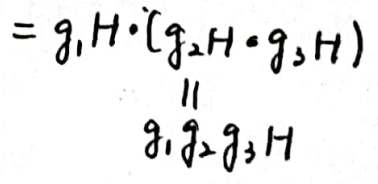 = g₁H·(g₂H·g₃H)
||
g₁g₂g₃H